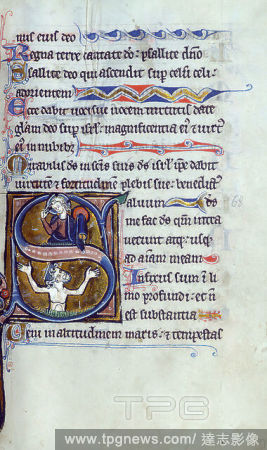 nus eius deo
Regna terre cantate deo: psallite dño
Psallite deo qui ascendit sup celū celi:
ad orientem
Ecce dabit uoci sue uocem uirtutis date
głam deo sup isrł: magnificentia eī ⁊ uirt'
ei in nubibz
Mirabilis ds in scīs suis ds isrł ipe dabit
uirtutem ⁊ fortitudinē plebis sue: benedict'
Saluum
68
me fac ds qm̄ intra
uerunt aq̄:
ad aīam meam
Infixus sum ī li
mo profundi: et ñ
est substantia
Ueni in altitudinem maris: ⁊ tempestas
TPG
www.tpgnews.com / 達志影像